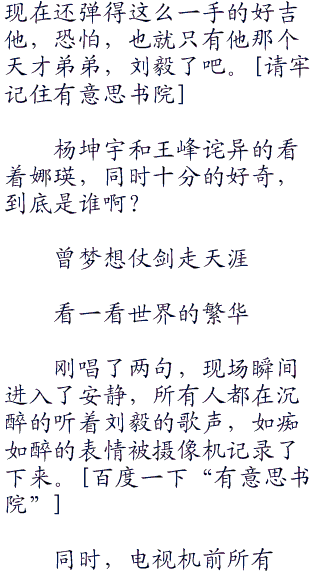 现在还弹得这么一手的好吉
他，恐怕，也就只有他那个
天才弟弟，刘毅了吧。[请牢
记住有意思书院]
杨坤宇和王峰诧异的看
着娜瑛，同时十分的好奇，
到底是谁啊？
曾梦想仗剑走天涯
看一看世界的繁华
刚唱了两句，现场瞬间
进入了安静，所有人都在沉
醉的听着刘毅的歌声，如痴
如醉的表情被摄像机记录了
下来。[百度一下“有意思书
院”]
同时，电视机前所有